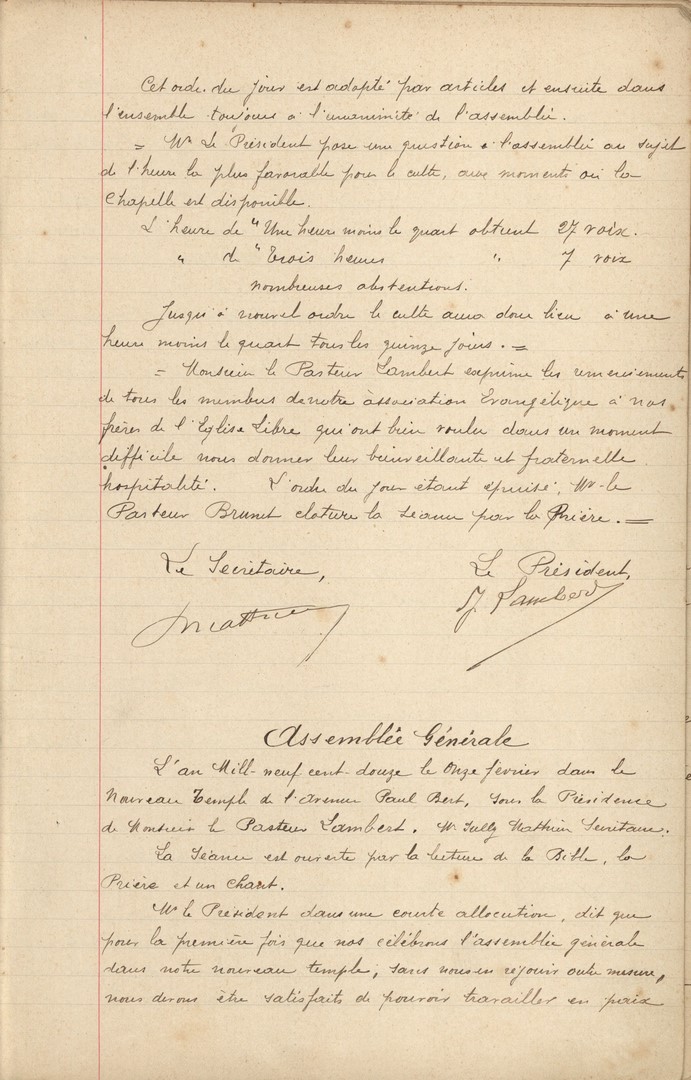 Cet ordre du jour est adopté par articles et ensuite dans
l'ensemble toujours à l'unanimité de l'assemblée.
= Mr Le Président pose une question à l'assemblée au sujet
de l'heure la plus favorable pour le culte, aux moments où la
Chapelle est disponible.
L'heure de "Une heure moins le quart obtient 27 voix.
" de "Trois heures " 7 voix
nombreuses abstentions.
Jusqu'à nouvel ordre le culte aura donc lieu à une
heure moins le quart tous les quinze jours. =
= Monsieur le Pasteur Lambert exprime les remerciements
de tous les membres de notre association Evangélique à nos
frères de l'Eglise Libre qui ont bien voulu dans un moment
difficile nous donner leur bienveillante et fraternelle
hospitalité. L'ordre du jour étant épuisé, Mr le
Pasteur Brunet cloture la séance par la Prière. =
Le Secrétaire, Le Président,
Mathieu J Lambert
Assemblée Générale
L'an Mill-neuf cent-douze le Onze février dans le
Nouveau Temple de l'Avenue Paul Bert, sous la Présidence
de Monsieur le Pasteur Lambert. Mr Sully Mathieu Secrétaire.
La Séance est ouverte par la lecture de la Bible, la
Prière et un Chant.
Mr le Président dans une courte allocution, dit que
pour la première fois que nos célébrons l'assemblée générale
dans notre nouveau temple, sans nous en réjouir outre mesure,
nous devons être satisfaits de pouvoir travailler en paix